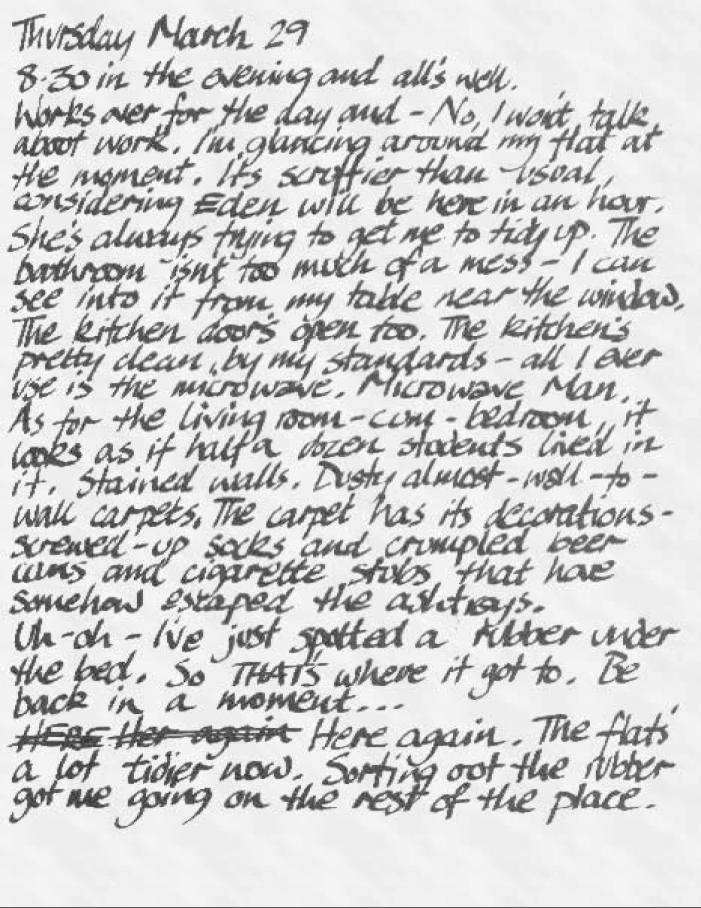 Thursday March 29
8.30 in the evening and all's well.
Works over for the day and - No, I won't talk
about work. I'm glancing around my flat at
the moment. It's scruffier than usual,
considering Eden will be here in an hour.
She's always trying to get me to tidy up. The
bathroom isn't too much of a mess - I can
see into it from my table near the window.
The kitchen door's open too. The kitchen's
pretty clean, by my standards - all I ever
use is the microwave. Microwave Man.
As for the living room-cum-bedroom, it
looks as if half a dozen students lived in
it. Stained walls. Dusty almost-wall-to-
wall carpets. The carpet has its decorations -
screwed-up socks and crumpled beer
cans and cigarette stubs that have
somehow escaped the ashtrays.
Uh-oh - I've just spotted a rubber under
the bed. So THAT'S where it got to. Be
back in a moment...
HERE Her again Here again. The flat's
a lot tidier now. Sorting out the rubber
got me going on the rest of the place.